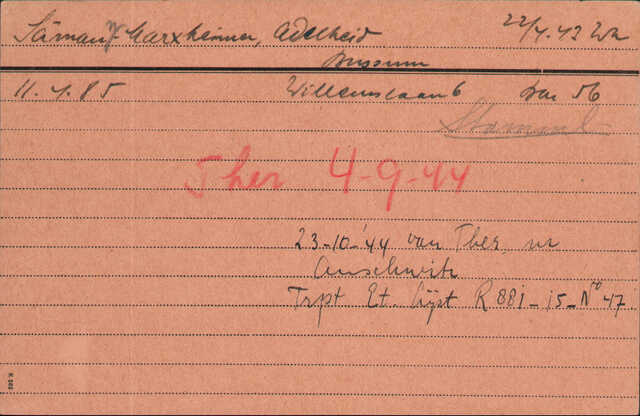 Särman / Marxheimer, Adelheid 22/4.43 Wh
Bussum
11.4.85 Willemslaan 6 bar 56
Stamkaart
Ther 4-9-44
23-10-'44 van Ther. nr
Auschwitz
Trpt Et. Lijst R 881-15-No 47